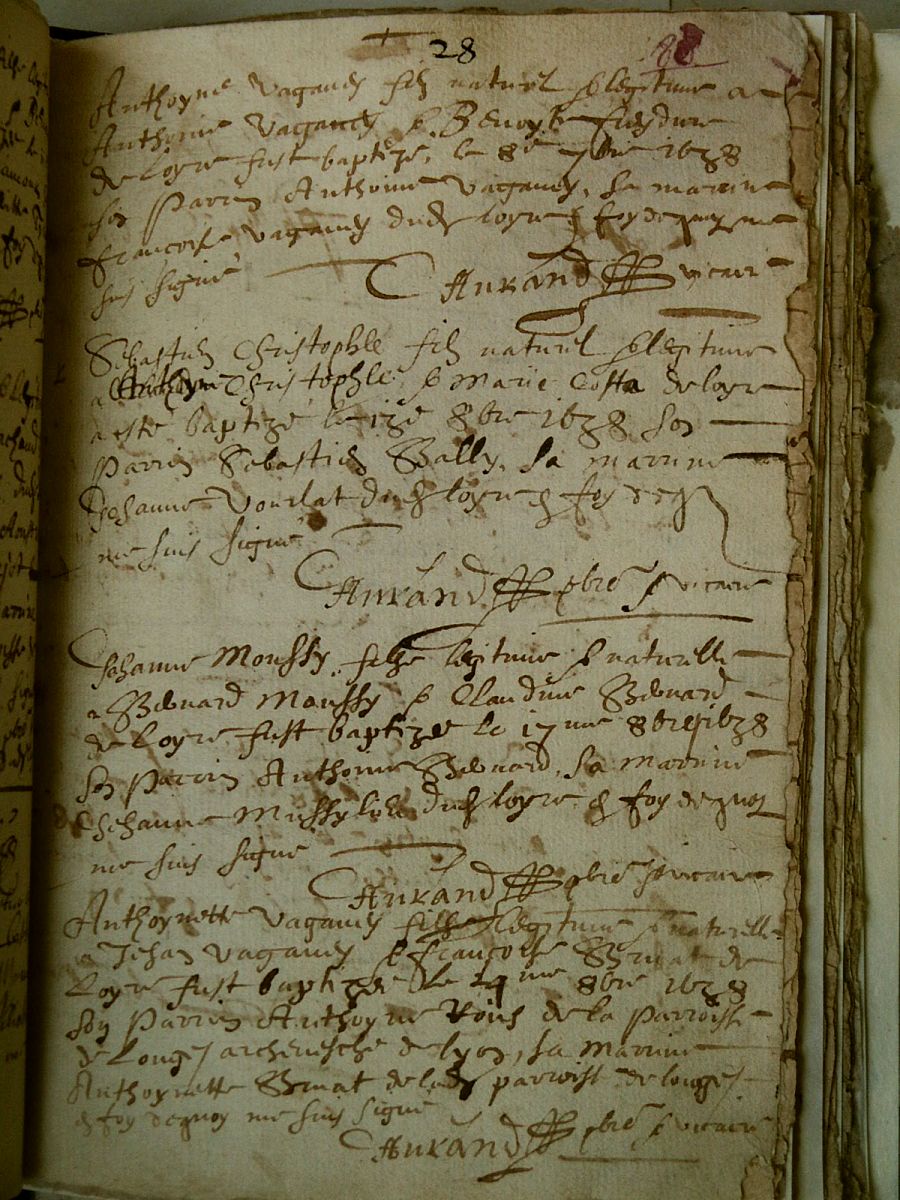 28
88
Anthoyne Vaganey filz naturel & legitime a
Anthoine Vaganey & Benoyte
de Loyre fust baptizé, le 8e 7bre 1638
son Parrin Anthoine Vaganey, sa marrine
Francoise Vaganey dudt loyre & foy de quoy me
suis signé
Aurand vicaire
Sebastien Christophle filz naturel & legitime
a Anthoyne Christophle & Marie Costa de loyre
a esté baptizé le 8bre 1638 son
Parrin Sebastien Bally, sa marrine
Jehanne Vourlat dudt loyre & foy de q
me suis signé
Aurand pbre & vicaire
Jehanne Moussy, filhe legitime & naturelle
a Benard Moussy & Claudine Benard
de Loyre fust baptizée le 17me 8bre 1638
son Parrin Anthoine Benard, sa marrine
Jehanne dudt loyre & foy de quoy
me suis signé
Aurand pbre & vicaire
Anthoynette Vaganey filhe legitime & naturelle
a Jehan Vaganey & Francoise de
Loyre fust baptizée le 24me 8bre 1638
son Parrin Anthoyne de la Parroisse
de Longes archevesché de lyon, sa marrine
Anthoynette de ladt parroisse de longes
& foy de quoy me suis signé
Aurand pbre & vicaire